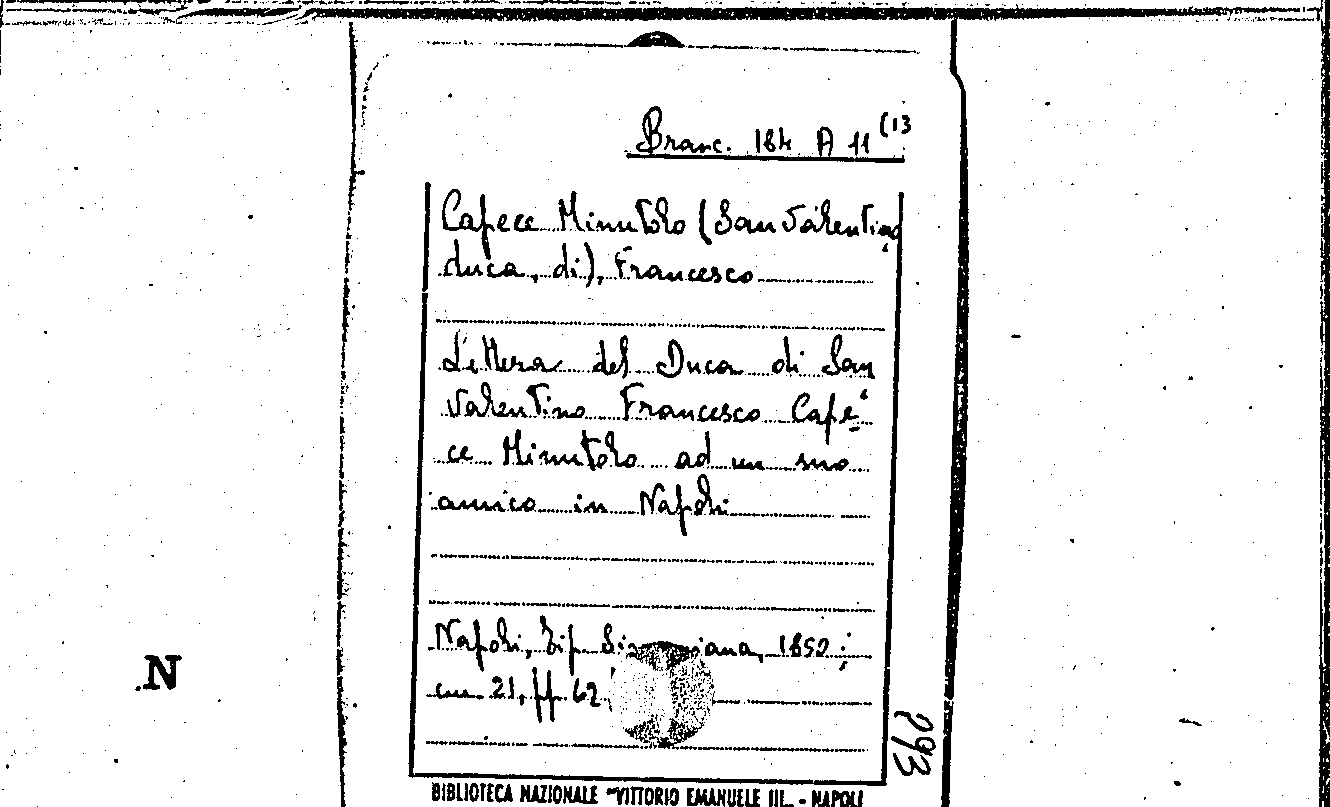 Branc. 184 A 11 (13
Capece Minutolo (San Valentino,
duca, di), Francesco
Lettera del Duca di San
Valentino Francesco Cape-
ce Minutolo ad un suo
amico in Napoli
Napoli, Tip. 1852;
cm 21, pp. 62
293
N
BIBLIOTECA NAZIONALE "VITTORIO EMANUELE III„ - NAPOLI